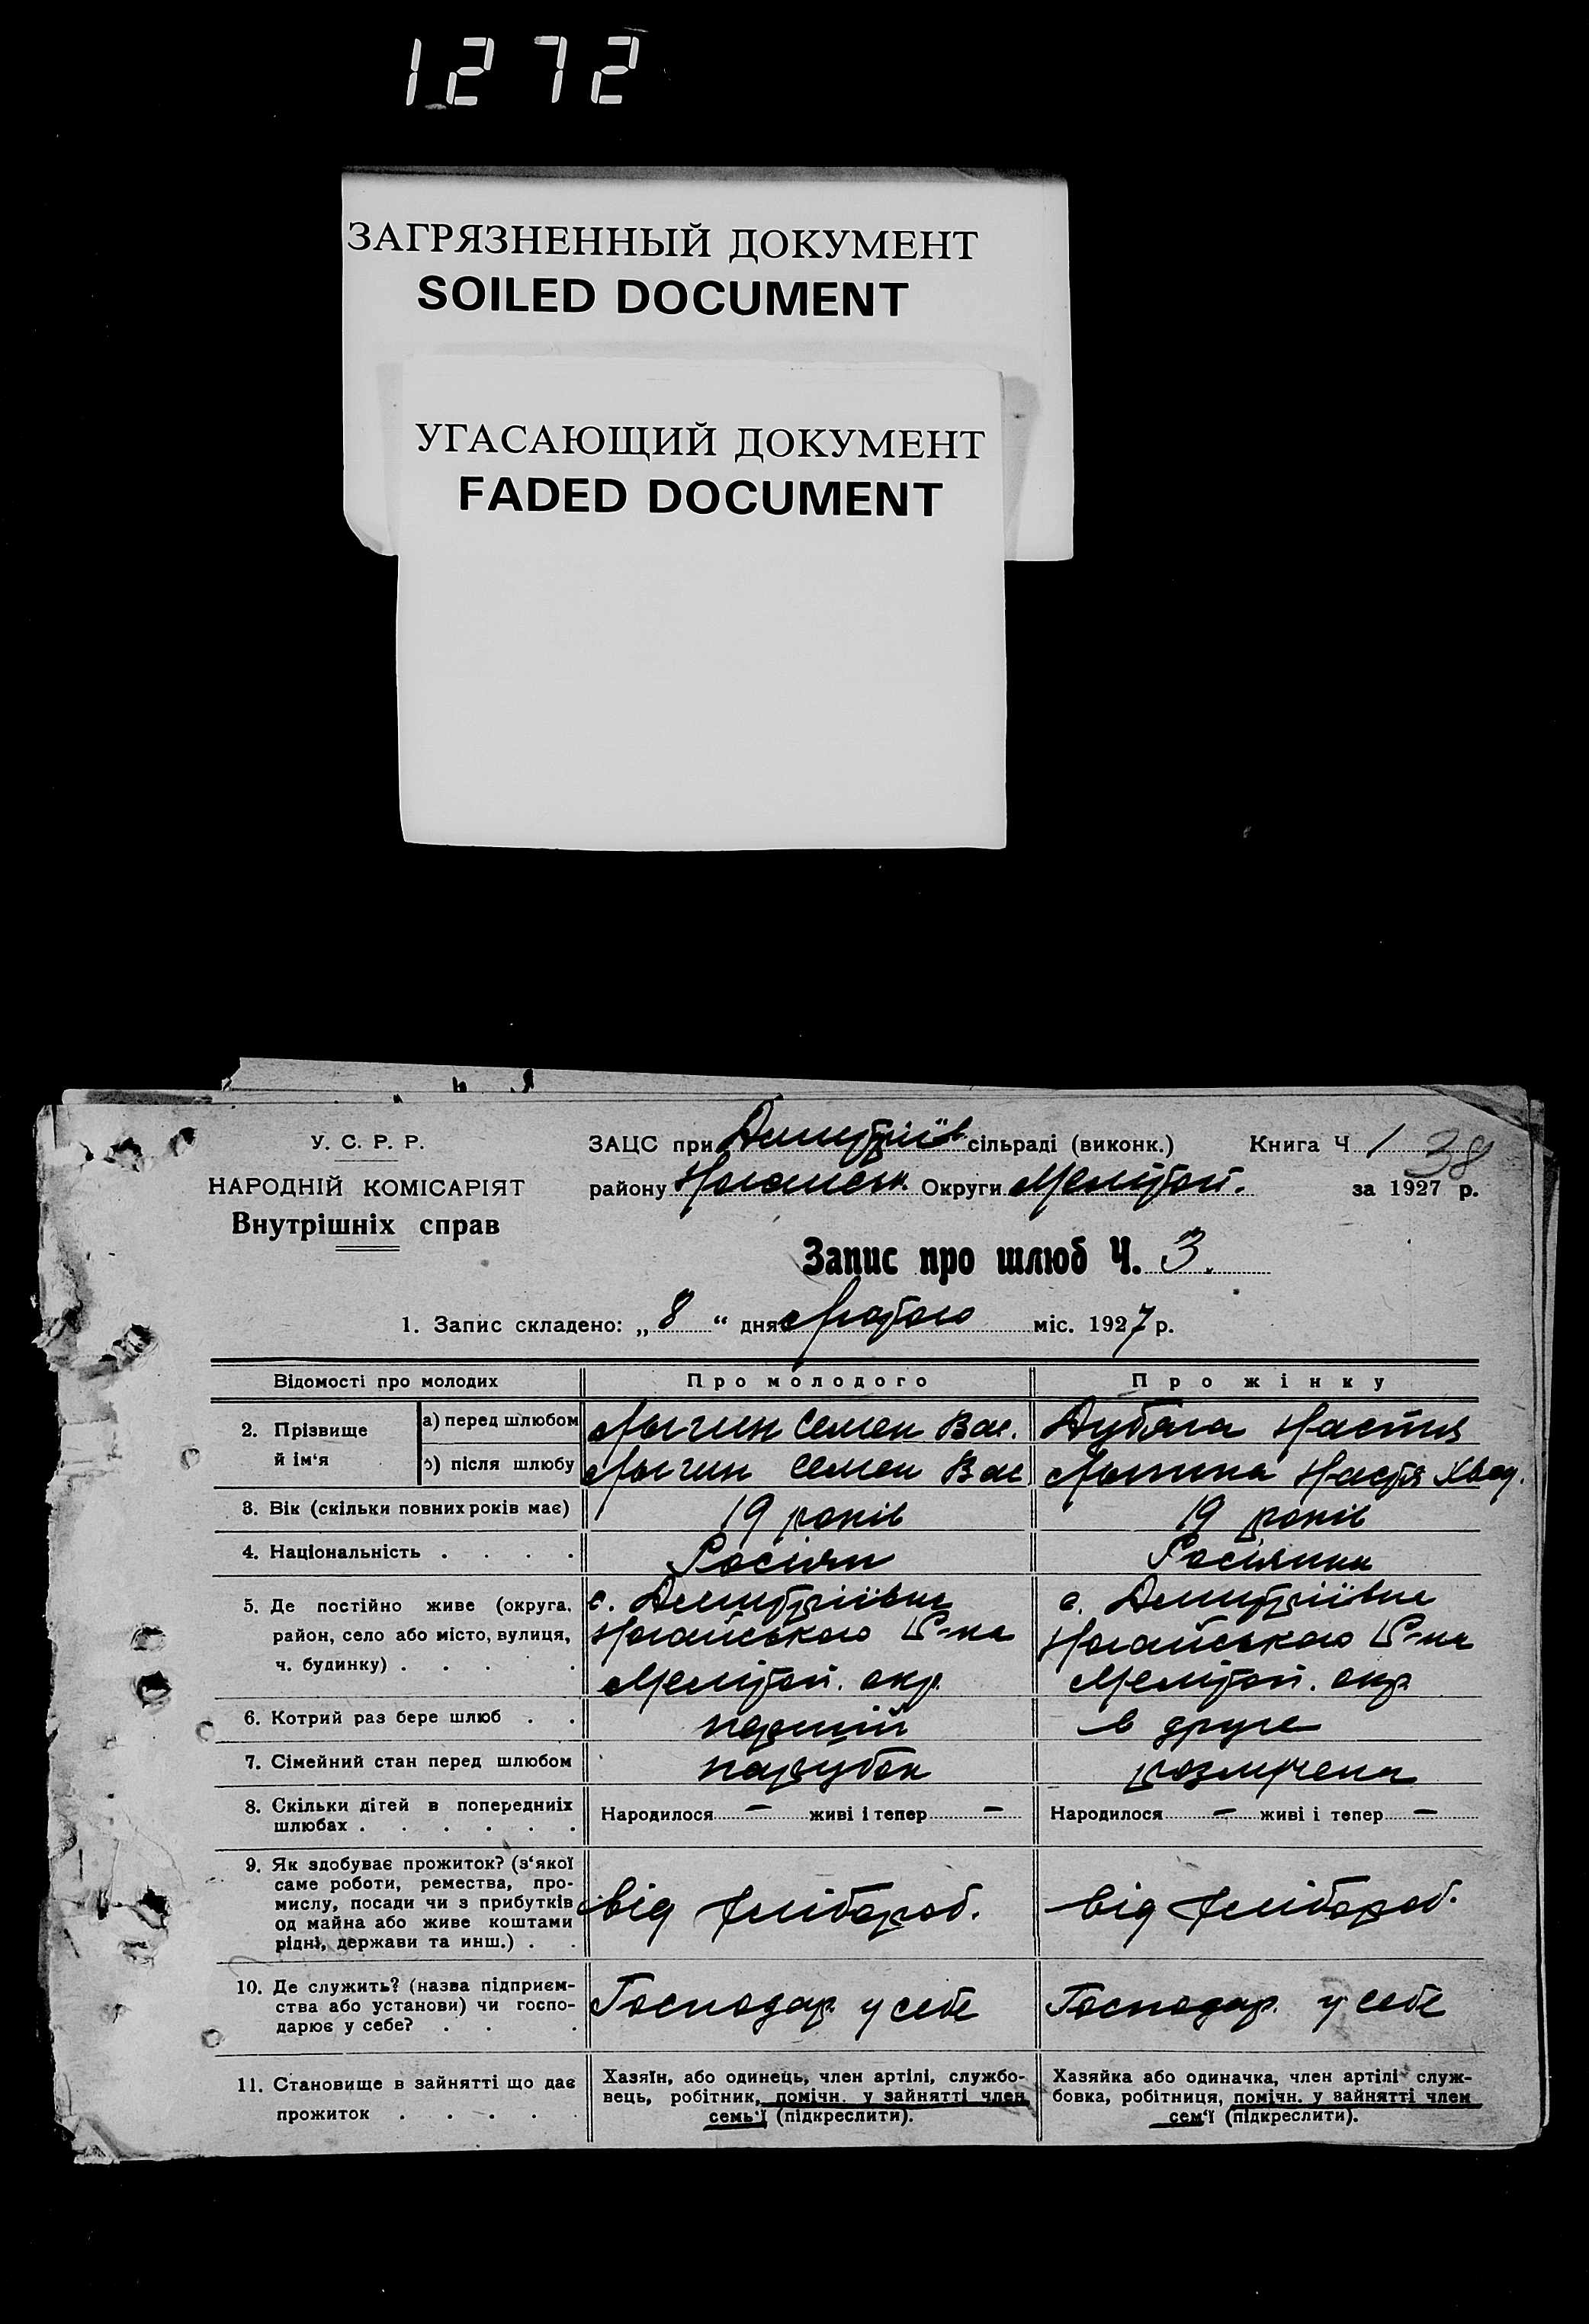 1272
ЗАГРЯЗНЕННЫЙ ДОКУМЕНТ
SOILED DOCUMENT
УГАСАЮЩИЙ ДОКУМЕНТ
FADED DOCUMENT
У. С. Р. Р.
НАРОДНІЙ КОМІСАРІЯТ
Внутрішніх справ
ЗАЦС при Дмитріїв сільраді (виконк.) Книга Ч 1 38
району Ногайськ. Округи Мелітоп. за 1927 р.
Запис про шлюб Ч. 3.
1. Запис складено: „8“ дня Лютого міс. 1927 р.
Відомості про молодих Про молодого Про жінку
2. Прізвище й ім‘я
а) перед шлюбом Семен Вас. Дубяга Настя
б) після шлюбу Семен Вас Настя Хвед.
3. Вік (скільки повних років має) 19 років 19 років
4. Національність . . . . Росіян Росіянка
5. Де постійно живе (округа, район, село або місто, вулиця, ч. будинку) . . . . .
с. Дмитріївка
Ногайського Р-на
Мелітоп. окр.
с. Дмитріївка
Ногайського Р-на
Мелітоп. окр.
6. Котрий раз бере шлюб . . перший в друге
7. Сімейний стан перед шлюбом парубок розлучена
8. Скільки дітей в попередниіх шлюбах . . . . . . Народилося — живі і тепер — Народилося — живі і тепер —
9. Як здобуває прожиток? (з‘якої
саме роботи, ремества, про-
мислу, посади чи з прибутків
од майна або живе коштами
рідні, держави та инш.) . .
від хлібороб. від хлібороб.
10. Де служить? (назва підприєм-
ства або установи) чи госпо-
дарює у себе? . . .
Господар. у себе Господар. у себе
11. Становище в зайнятті що дає
прожиток . . . . .
Хазяїн, або одинець, член артілі, службо-
вець, робітник, помічн. у зайнятті член
семь‘ї (підкреслити).
Хазяйка або одиначка, член артілі служ-
бовка, робітниця, помічн. у зайнятті член
сем‘ї (підкреслити).